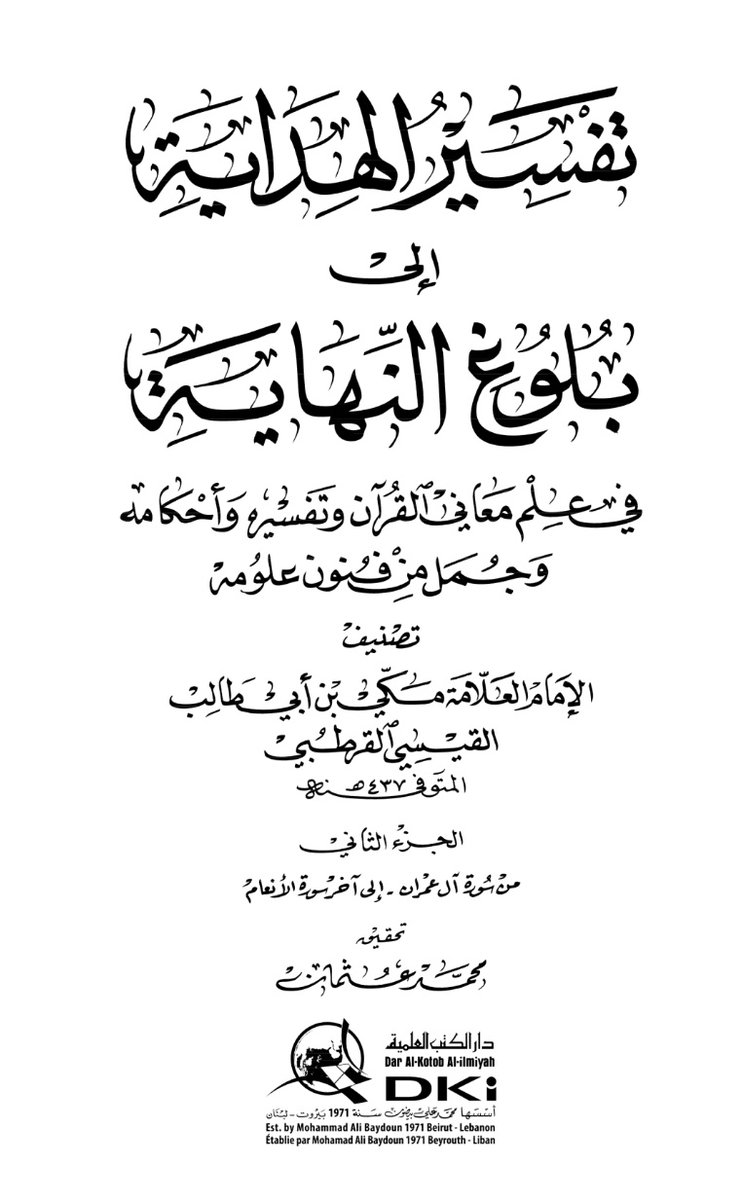 تَفْسِيرُ الهِدَايَةِ
إلىْ
بُلُوُغِ النِّهَايَةِ
في عِلْمِ مَعَانِي ٱلقُرْآن وَتَفسيْرِهِ وَأحْكامه
وَجُمَل مِنْ فُنون علوُمهْ
تصْنيف
الإمَام العَلّامَة مَكّيْ بْن أبيْ طَالِب
القَيْسِي ٱلقرطُبيْ
المتَوفى ٤٣٧هـ سنة
الجزءُ الثانيْ
منْ سُورَة آل عمران - إلى آخر سورَة الأنعامْ
تحقيْق
محمّد عُثمان
دار الكتب العلمية
Dar Al-Kotob Al-ilmiyah
DKi
أسسها محمد علي بيضون سنة 1971 بيروت - لبنان
Est. by Mohammad Ali Baydoun 1971 Beirut - Lebanon
Établie par Mohamad Ali Baydoun 1971 Beyrouth - Liban